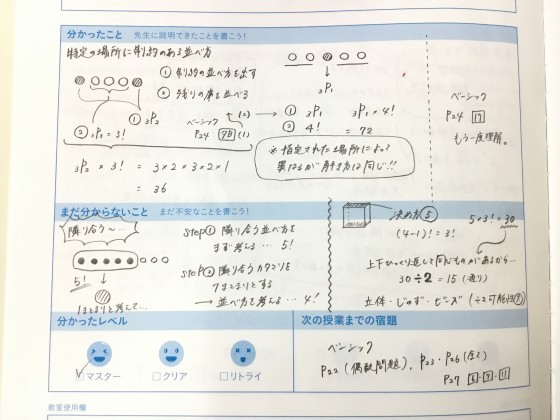 分かったこと 先生に説明できたことを書こう!
特定の場所に制約のある並べ方
① 制約の並べ方を出す
② 残りの席を並べる
① ₃P₂
② ₃P₃ = 3!
ベーシック
P24 7B (1)
(2)
₃P₂ × 3! = 3×2×3×2×1
= 36
₃P₁
① ₃P₁
② 4!
₃P₁ × 4!
= 72
※指定された場所によって
異なるが解き方は同じ!!
ベーシック
P24 17
もう一度理解。
まだ分からないこと まだ不安なことを書こう!
隣り合う〜…
5!
1まとまりと考えて…
Step① 隣り合う並べ方を
まず考える … 5!
Step② 隣り合うカタマリを
1まとまりとする
→ 並べ方を考える … 4!
決め方 5
(4-1)! = 3!
5×3! = 30
上下ひっくり返して同じものがあるから…
30÷2 = 15 (通り)
立体・じゅず・ビーズ
分かったレベル
マスター
クリア
リトライ
次の授業までの宿題
ベーシック
P22 (偶数問題), P23・P26 (全て)
P27
教室使用欄